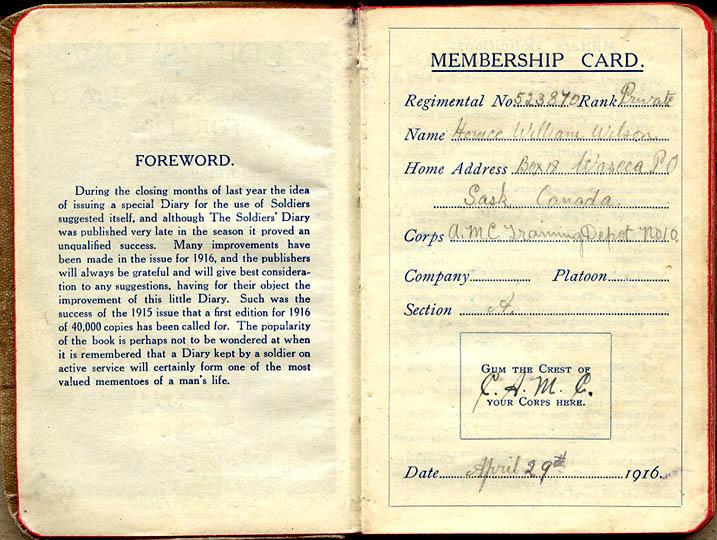 FOREWORD.
During the closing months of last year the idea
of issuing a special Diary for the use of Soldiers
suggested itself, and although The Soldiers' Diary
was published very late in the season it proved an
unqualified success. Many improvements have
been made in the issue for 1916, and the publishers
will always be grateful and will give best considera-
tion to any suggestions, having for their object the
improvement of this little Diary. Such was the
success of the 1915 issue that a first edition for 1916
of 40,000 copies has been called for. The popularity
of the book is perhaps not to be wondered at when
it is remembered that a Diary kept by a soldier on
active service will certainly form one of the most
valued mementoes of a man's life.
MEMBERSHIP CARD.
Regimental No. 523870 Rank Private
Name Horace William Wilson
Home Address Box 18 Waseca PO
Sask Canada.
Corps A.M.C Training Depot No 10.
Company Platoon
Section A.
GUM THE CREST OF
C. A. M. C.
YOUR CORPS HERE.
Date April 29th 1916.